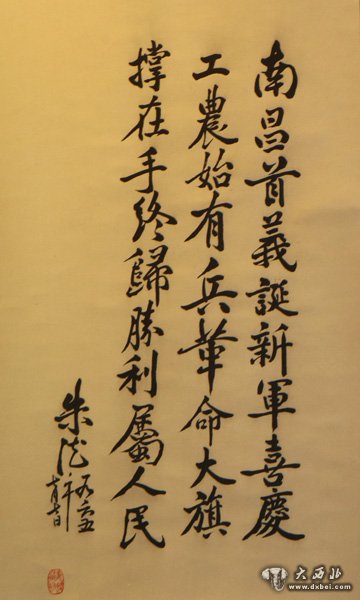 南昌首義誕新軍喜慶
工農始有兵革命大旗
撑在手終歸勝利屬人民
朱德
一九六五
年
大西北
www.dxbei.com